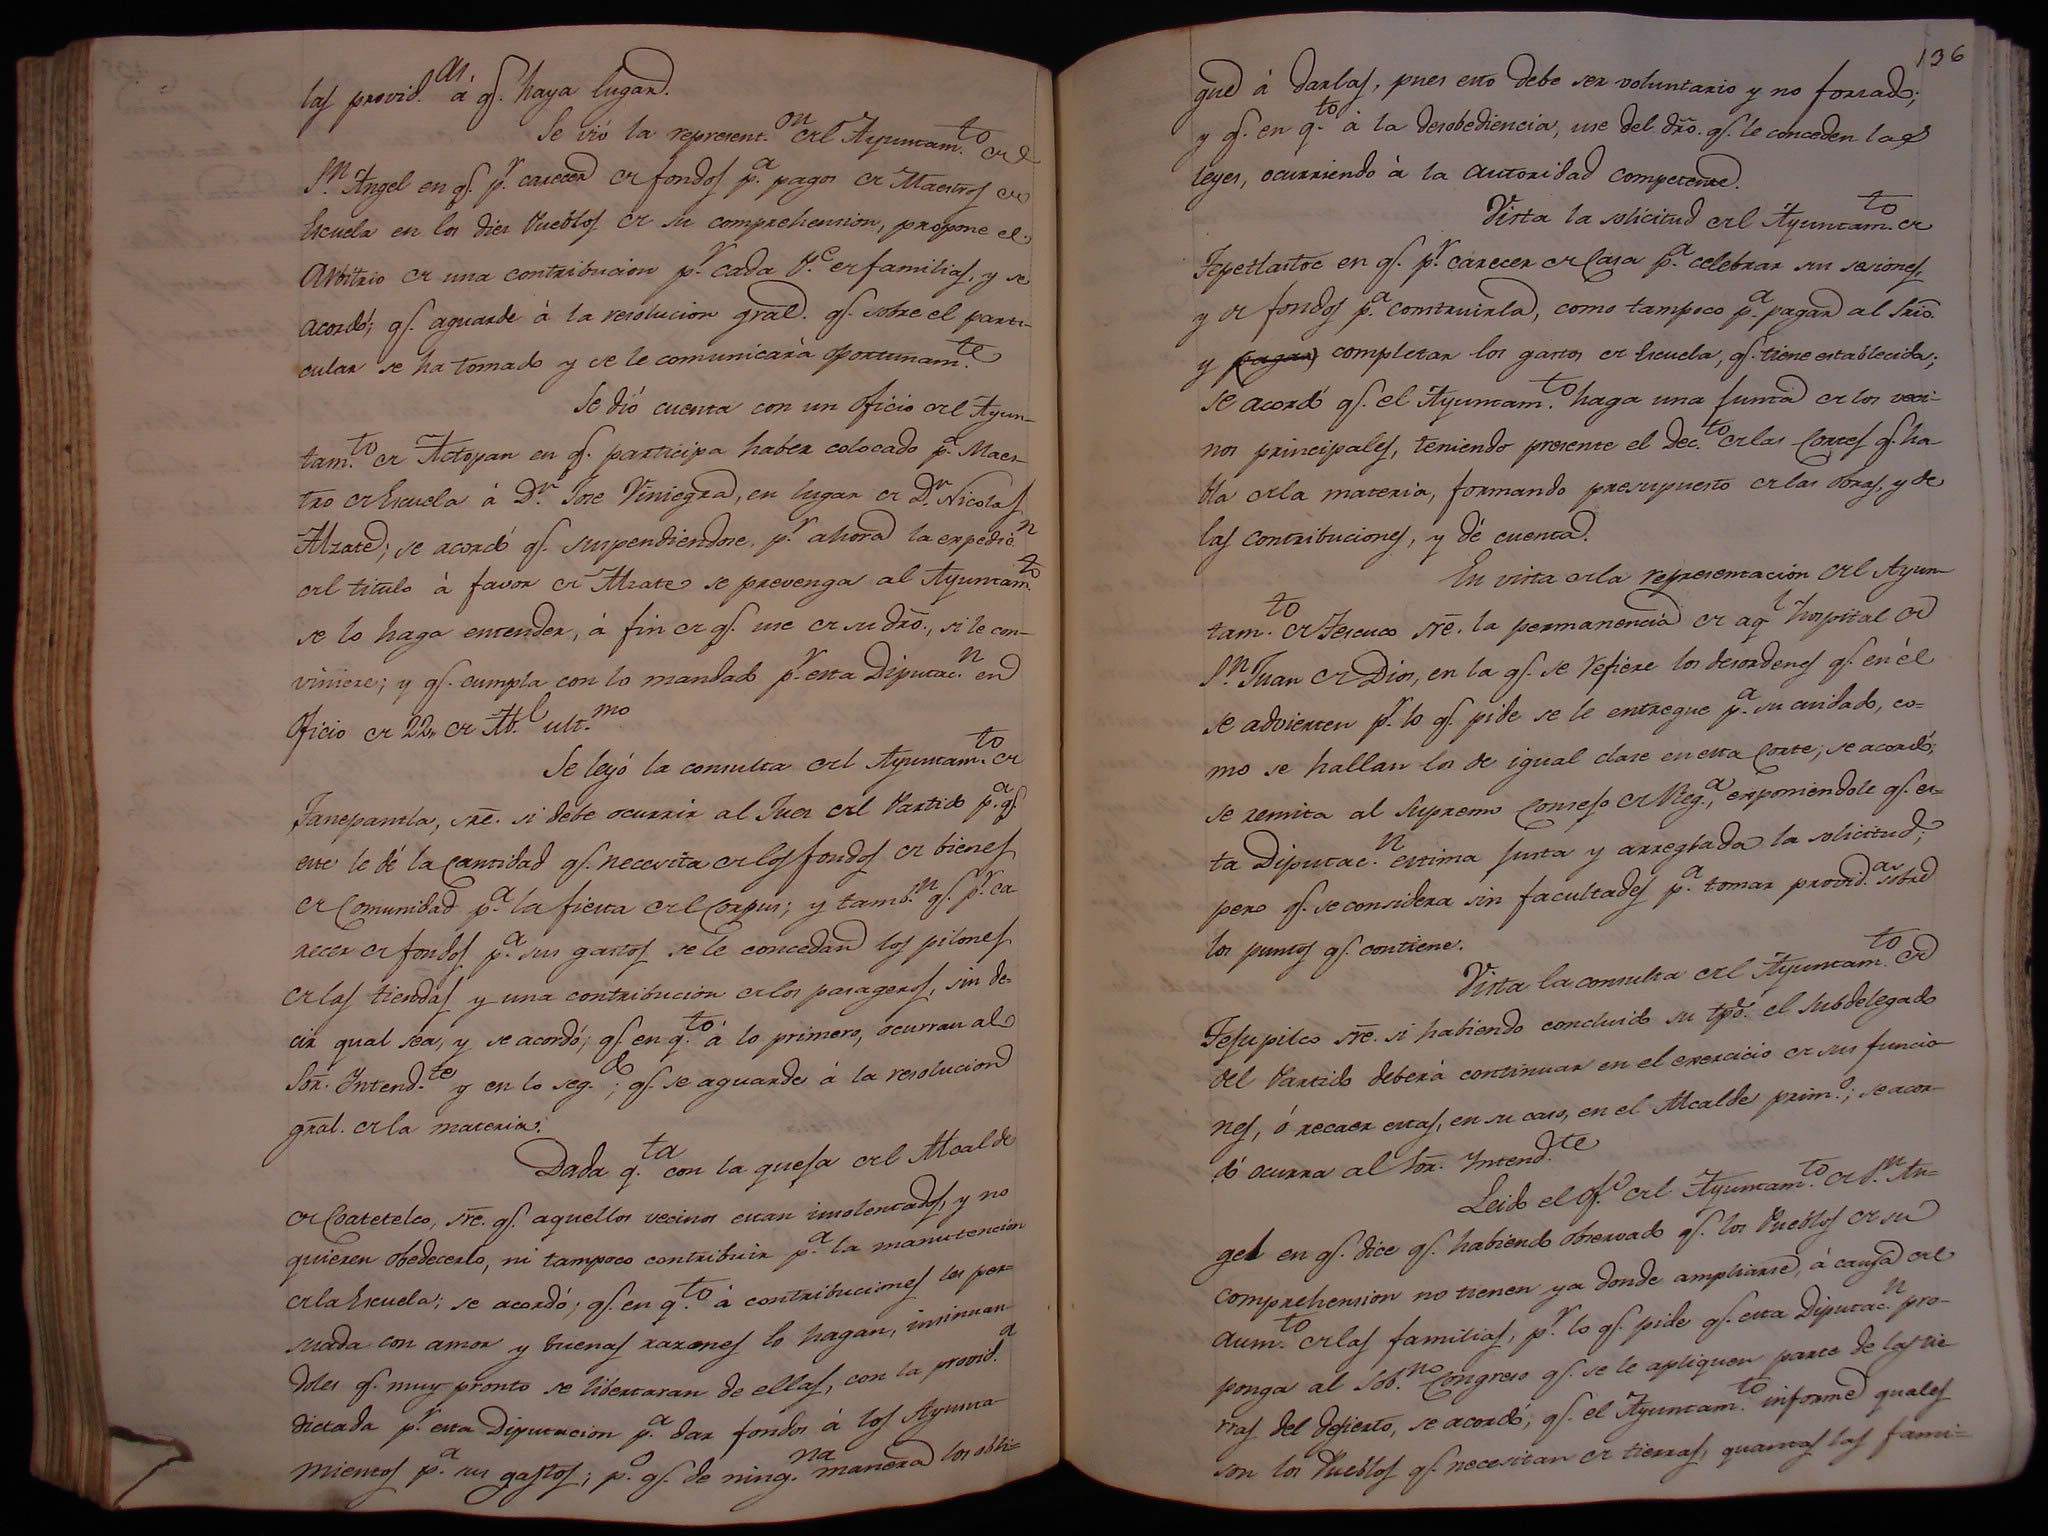 las provid.as á q.e haya lugar.
Se vió la represent.on del Ayuntam.to de
S.n Angel en q.e p.r carecer de fondos p.a pagos de Maestros de
Escuela en los diez Pueblos de su comprehension, propone el
Arbitrio de una contribucion p.r cada P.e de familias, y se
acordó; q.e aguarde à la resolucion gral. q.e sobre el parti-
cular se ha tomado y se le comunicarà oportunam.te
Se dió cuenta con un Oficio del Ayun-
tam.to de Actopan en q.e participa haber colocado p.r Maes-
tro de Escuela à D.n Jose Viniegra, en lugar de D.n Nicolas
Alzate; se acordó q.e suspendiendose p.r ahora la expedic.n
del titulo à favor de Alzate se prevenga al Ayuntam.to
se lo haga entender, á fin de q.e use de su dro., si le con-
viniere; y q.e cumpla con lo mandado p.r esta Diputac.n en
Oficio de 22,, de Ab.l ult.mo
Se leyó la consulta del Ayuntam.to de
Tanepantla, sre. si debe ocurrir al Juez del Partido p.a q.e
este le dé la Cantidad q.e necesita de los fondos de bienes
de Comunidad p.a la fiesta del Corpus; y tamb.n q.e p.r ca-
recer de fondos p.a sus gastos se le concedan los pilones
de las tiendas y una contribucion de los pasageros, sin de-
cir qual sea, y se acordó; q.e en q.to á lo primero, ocurran al
Sor. Intend.te y en lo seg.do; q.e se aguarde à la resolucion
gral. de la materia.
Dada q.ta con la queja del Alcalde
de Coatetelco, sre. q.e aquellos vecinos estan insolentados, y no
quieren obedecerlo, ni tampoco contribuir p.a la manutencion
de la Escuela; se acordó; q.e en q.to á contribuciones los per-
suada con amor y buenas razones lo hagan, insinuan-
doles q.e muy pronto se libertaran de ellas, con la provid.a
dictada p.r esta Diputacion p.a dar fondos à los Ayunta-
mientos p.a sus gastos; p.o q.e de ning.na manera los obli-
136
gue á darlas, pues esto debe ser voluntario y no forzado;
y q.e en q.to à la desobediencia, use del dro. q.e le conceden las
leyes, ocurriendo à la autoridad competente.
Vista la solicitud del Ayuntam.to de
Tepetlastoc en q.e p.r carecer de Casa p.a celebrar sus sesiones,
y de fondos p.a construirla, como tampoco p.a pagar al Srio.
y pagar completar los gastos de Escuela, q.e tiene establecida;
se acordó q.e el Ayuntam.to haga una Junta de los veci-
nos principales, teniendo presente el Dec.to de las Cortes q.e ha-
bla de la materia, formando presupuesto de las obras, y de
las contribuciones, y dé cuenta.
En vista de la representacion del Ayun-
tam.to de Tescuco sre. la permanencia de aq.l hospital de
S.n Juan de Dios, en la q.e se refiere los desordenes q.e en él
se advierten p.r lo q.e pide se le entregue p.a su cuidado, co-
mo se hallan los de igual clase en esta Corte; se acordó;
se remita al Supremo Consejo de Reg.a, exponiendole q.e es-
ta Diputac.n estima justa y arreglada la solicitud;
pero q.e se considera sin facultades p.a tomar provid.as sobre
los puntos q.e contiene.
Vista la consulta del Ayuntam.to de
Tejupilco sre. si habiendo concluido su tpo. el Subdelegado
del Partido deberà continuar en el exercicio de sus funcio-
nes, ó recaer estas, en su caso, en el Alcalde prim.o; se acor-
dó ocurra al Sor. Intend.te
Leido el Of.o del Ayuntam.to de S.n An-
gel en q.e dice q.e habiendo observado q.e los Pueblos de su
comprehension no tienen ya donde ampliarse, à causa del
aum.to de las familias, p.r lo q.e pide q.e esta Diputac.n pro-
ponga al Sob.no Congreso q.e se le apliquen parte de las tie-
rras del desierto, se acordó; q.e el Ayuntam.to informe quales
son los Pueblos q.e necesitan de tierras, quantas las fami-